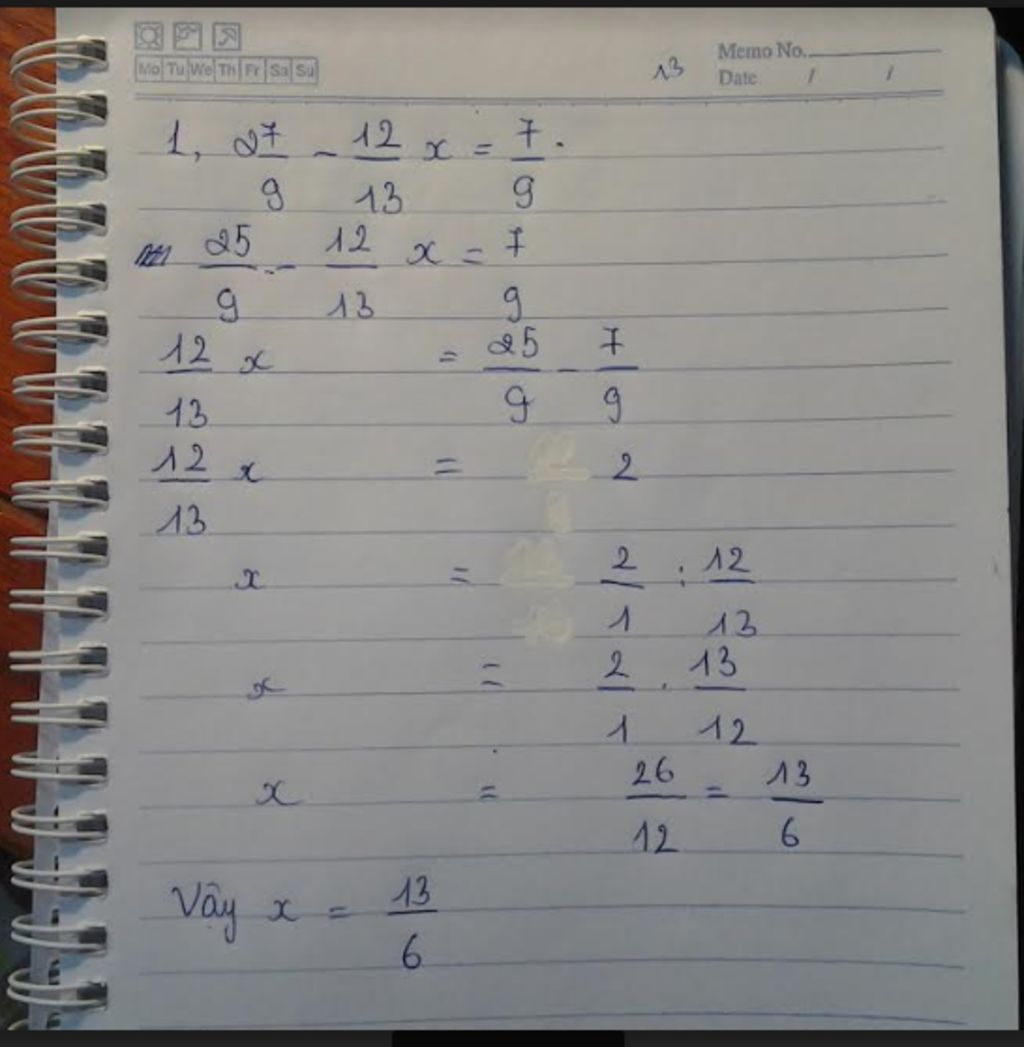 Mo Tu We Th Fr Sa Su
13
Memo No.
Date / /
1, 2 7/9 - 12/13 x = 7/9.
25/9 - 12/13 x = 7/9
12/13 x = 25/9 - 7/9
12/13 x = 2
x = 2/1 : 12/13
x = 2/1 . 13/12
x = 26/12 = 13/6
Vậy x = 13/6